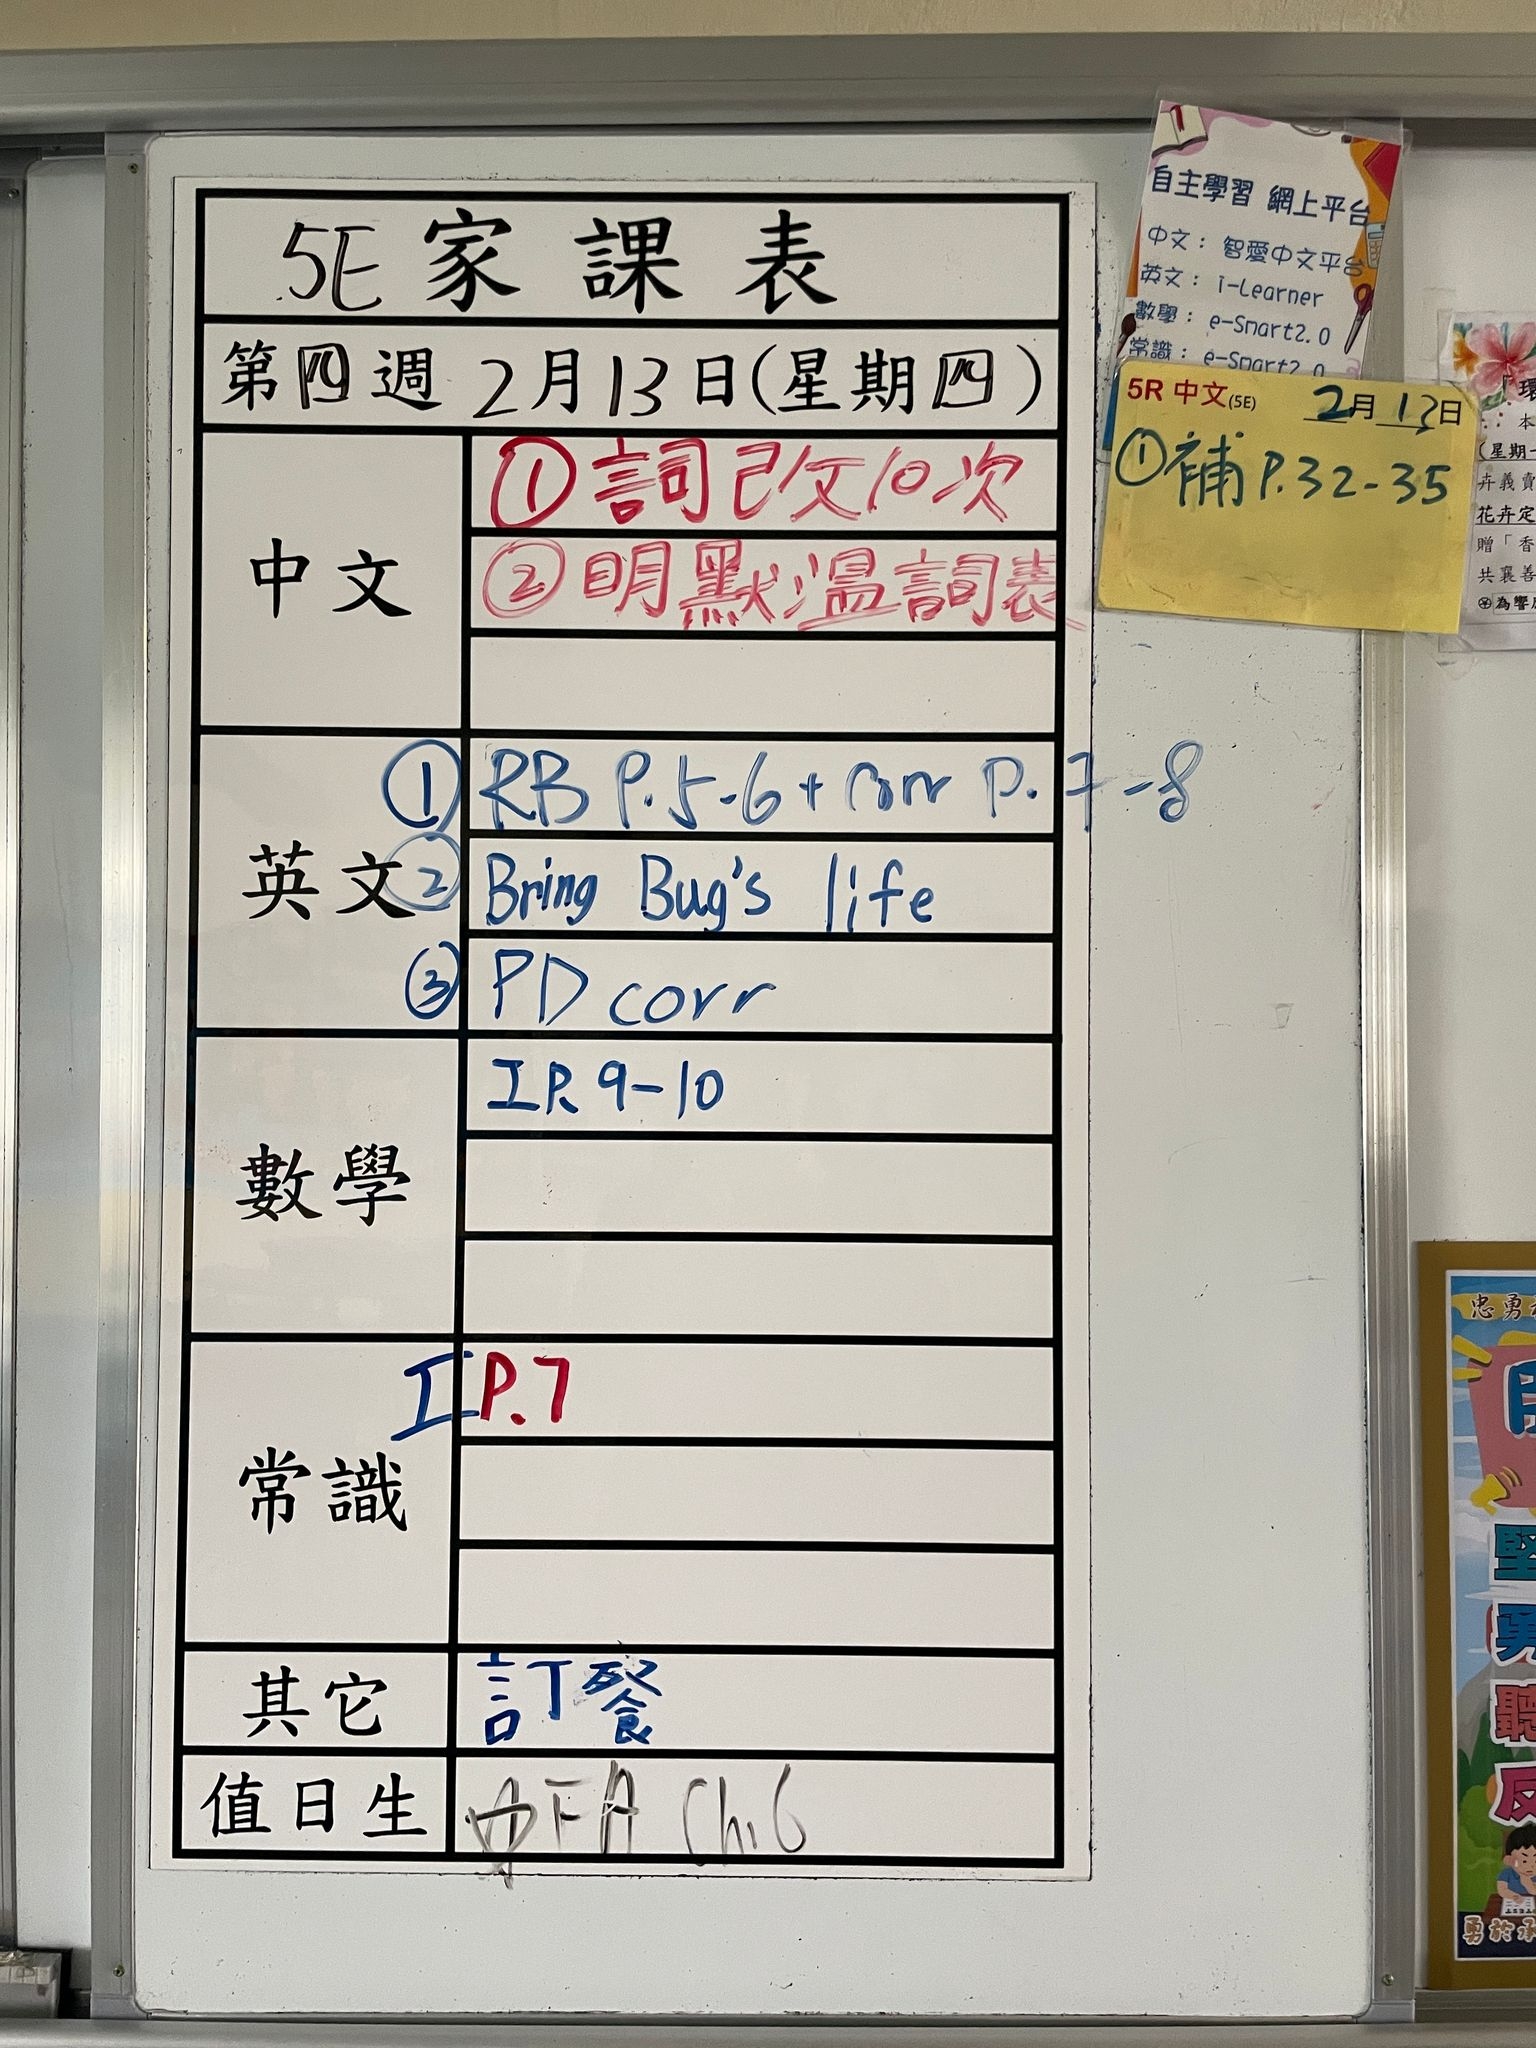 5E 家課表
第四週 2月13日(星期四)
中文
① 詞改文10次
② 明默溫詞表
英文
① RB P.5-6 + corr P.7-8
② Bring Bug's life
③ PD corr
數學
I P. 9-10
常識
I P.7
其它
訂餐
值日生
Ch.6
自主學習 網上平台
中文： 智愛中文平台
英文： i-Learner
數學： e-Smart2.0
常識： e-Smart2.0
5R 中文(5E) 2月13日
① 補 P.32-35
本
(星期一
卉義賣
花卉定
贈「香
共襄善
為響應
忠勇
堅
勇
聽
反
勇於承